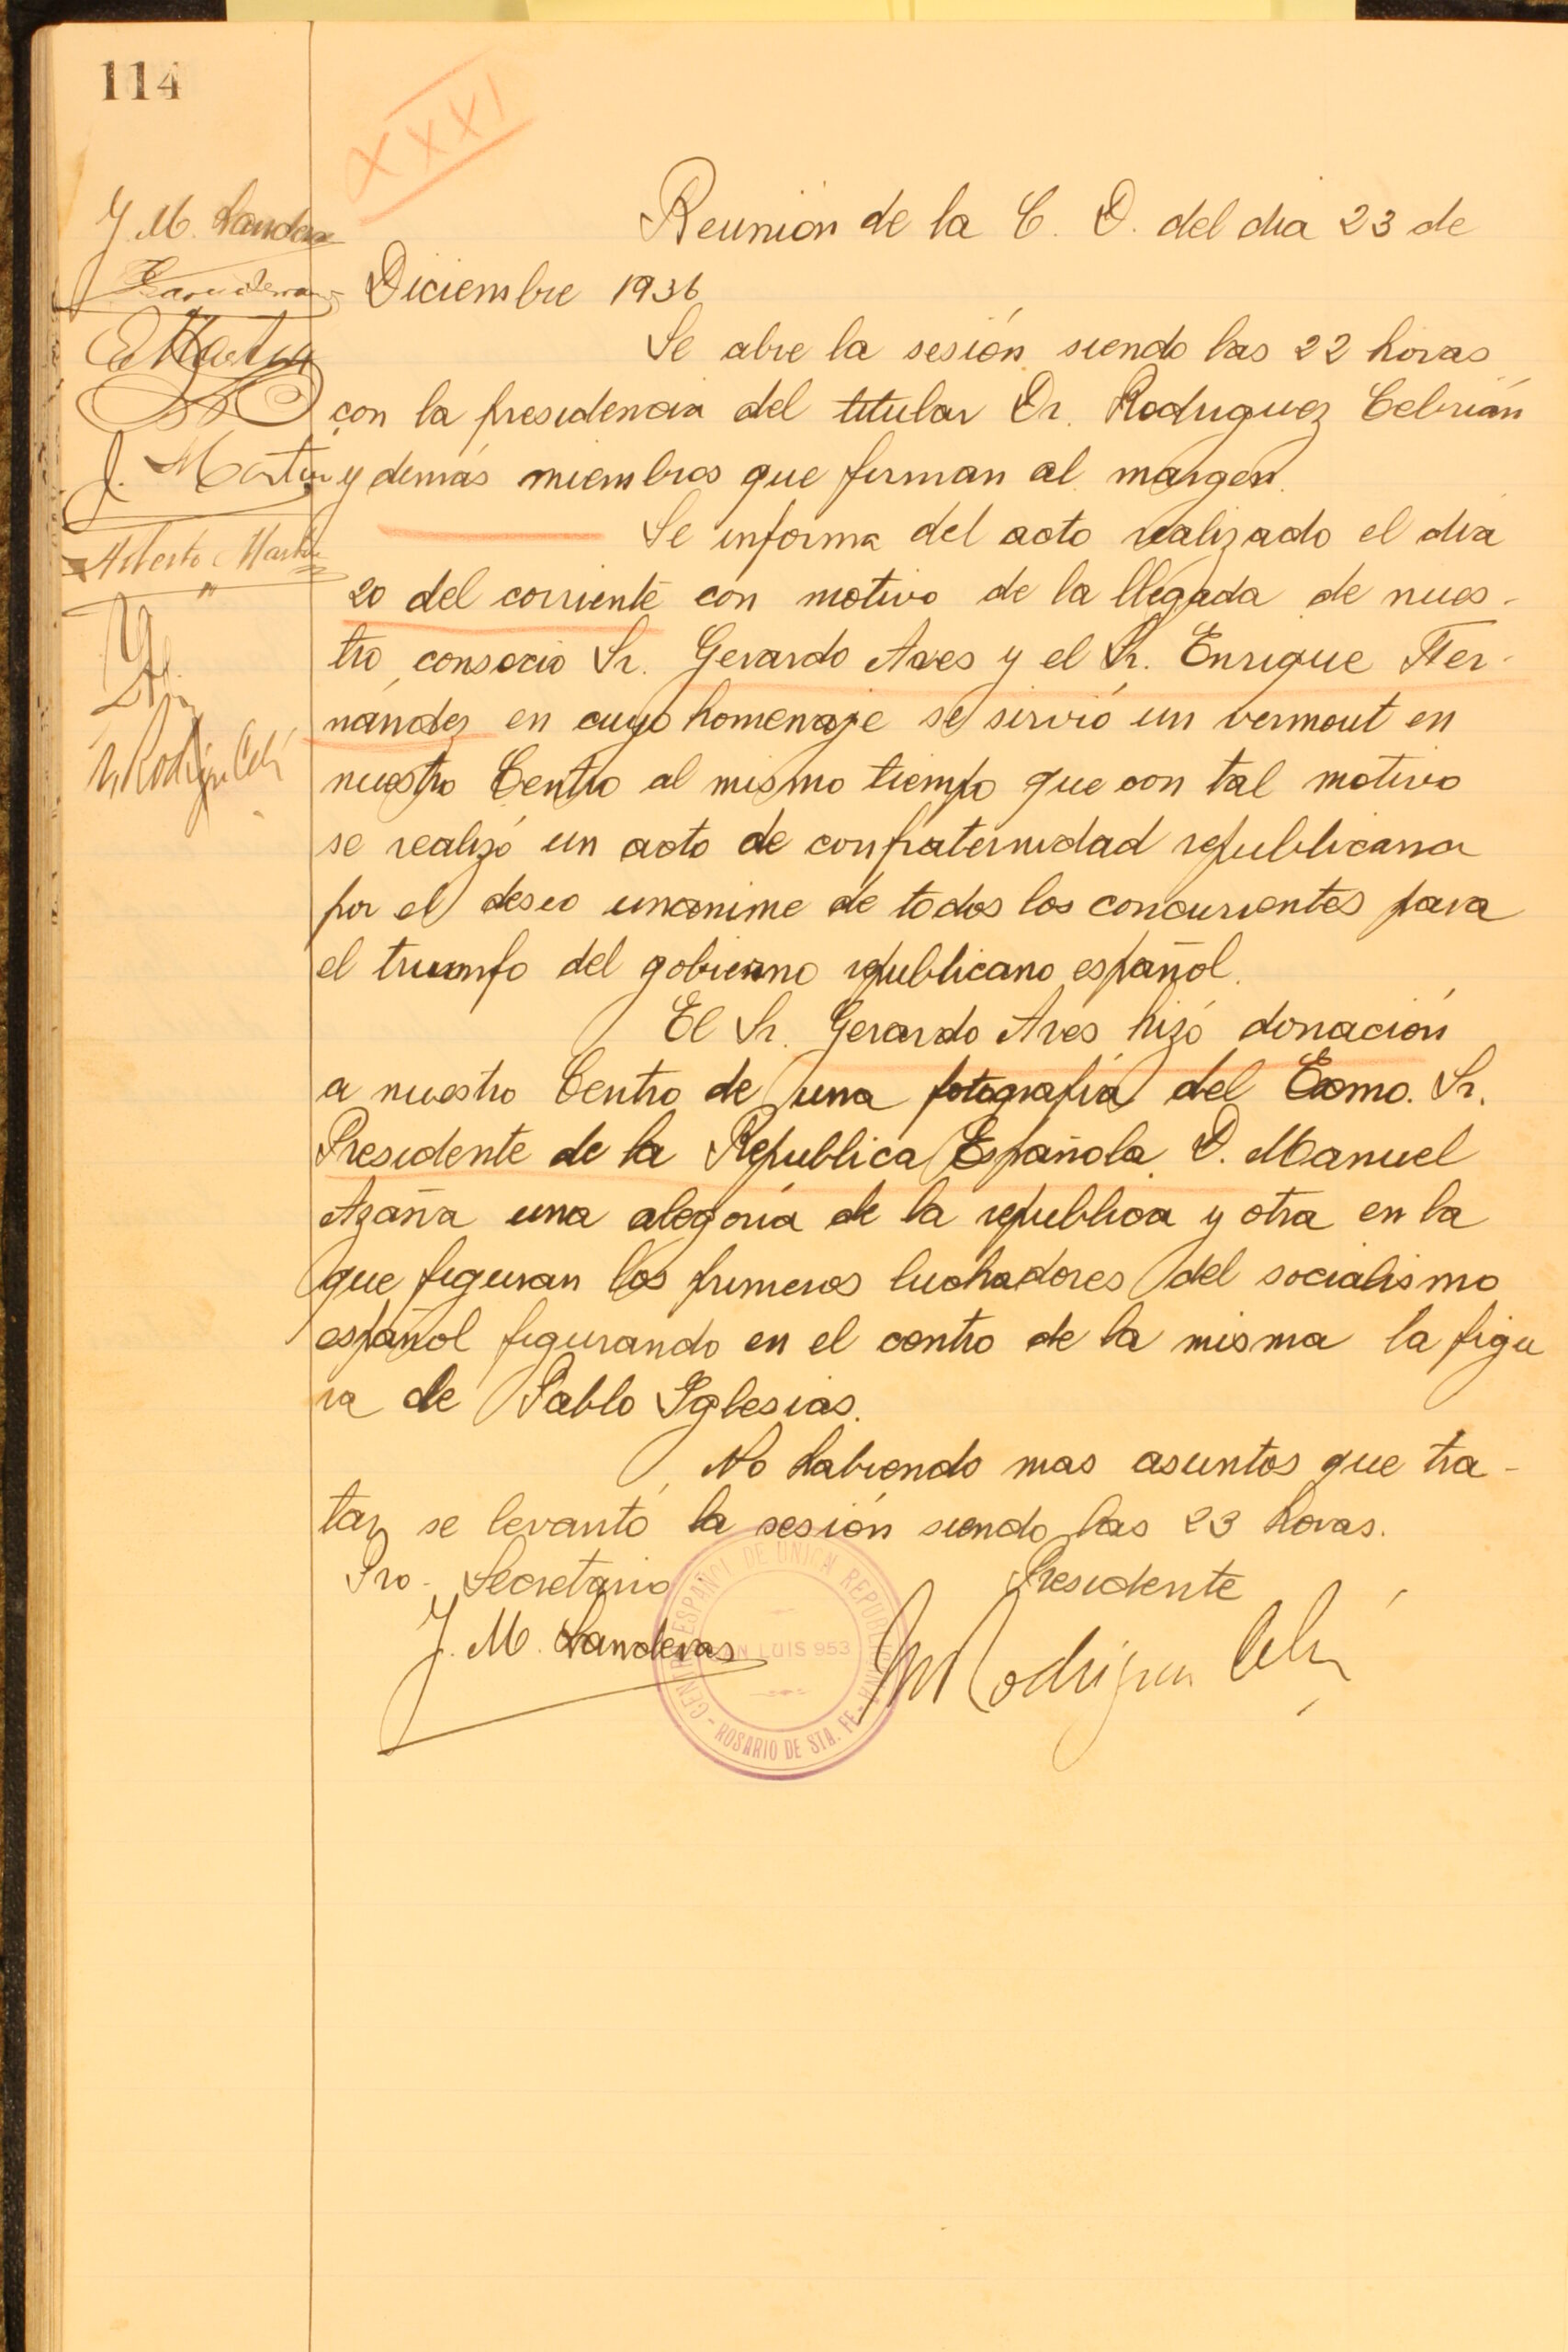 114
XXXI
Reunión de la C. D. del dia 23 de
Diciembre 1936
Se abre la sesión siendo las 22 horas
con la presidencia del titular Dr. Rodriguez Cebrián
y demás miembros que firman al margen.
Se informa del acto realizado el dia
20 del corriente con motivo de la llegada de nues-
tro consocio Sr. Gerardo Ares y el Sr. Enrique Fer-
nández en cuyo homenaje se sirvió un vermout en
nuestro Centro al mismo tiempo que con tal motivo
se realizó un acto de confraternidad republicana
por el deseo unanime de todos los concurrentes para
el triunfo del gobierno republicano español.
El Sr. Gerardo Ares hizó donación
a nuestro Centro de una fotografía del Excmo. Sr.
Presidente de la Republica Española D. Manuel
Azaña una alegoría de la republica y otra en la
que figuran los primeros luchadores del socialismo
español figurando en el centro de la misma la figu
ra de Pablo Iglesias.
No habiendo mas asuntos que tra-
tar se levantó la sesión siendo las 23 horas.
Pro-Secretario Presidente
J. M. Landeras
CENTRO ESPAÑOL DE UNION REPUBLICANA
SAN LUIS 953
- ROSARIO DE STA. FE -
J. M. Landeras
E. Martin
J. Martin
Alberto Martin